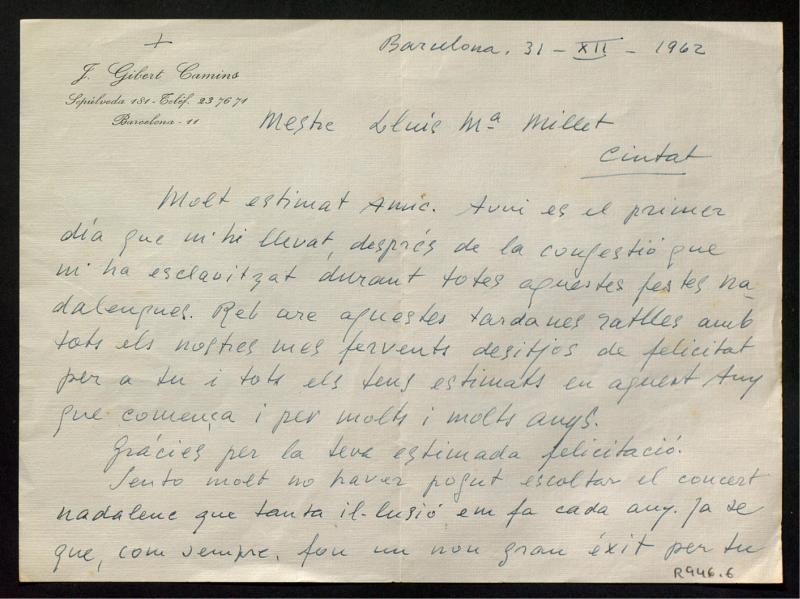 Barcelona, 31 - XII - 1962
J. Gibert Camins
Sepúlveda 181 - Teléf. 23 76 71
Barcelona - 11
Mestre Lluis Mª Millet
Ciutat
Molt estimat Amic. Avui es el primer
día que m'hi llevat, després de la congestió que
m'ha esclavitzat durant totes aquestes festes na-
dalenques. Reb are aquestes tardanes ratlles amb
tots els nostres mes fervents desitjos de felicitat
per a tu i tots els teus estimats en aquest Any
que comença i per molts i molts anys.
Gràcies per la teva estimada felicitació.
Sento molt no haver pogut escoltar el concert
nadalenc que tanta il-lusió em fa cada any. Ja se
que, com sempre, fou un nou gran éxit per tu
R946.6